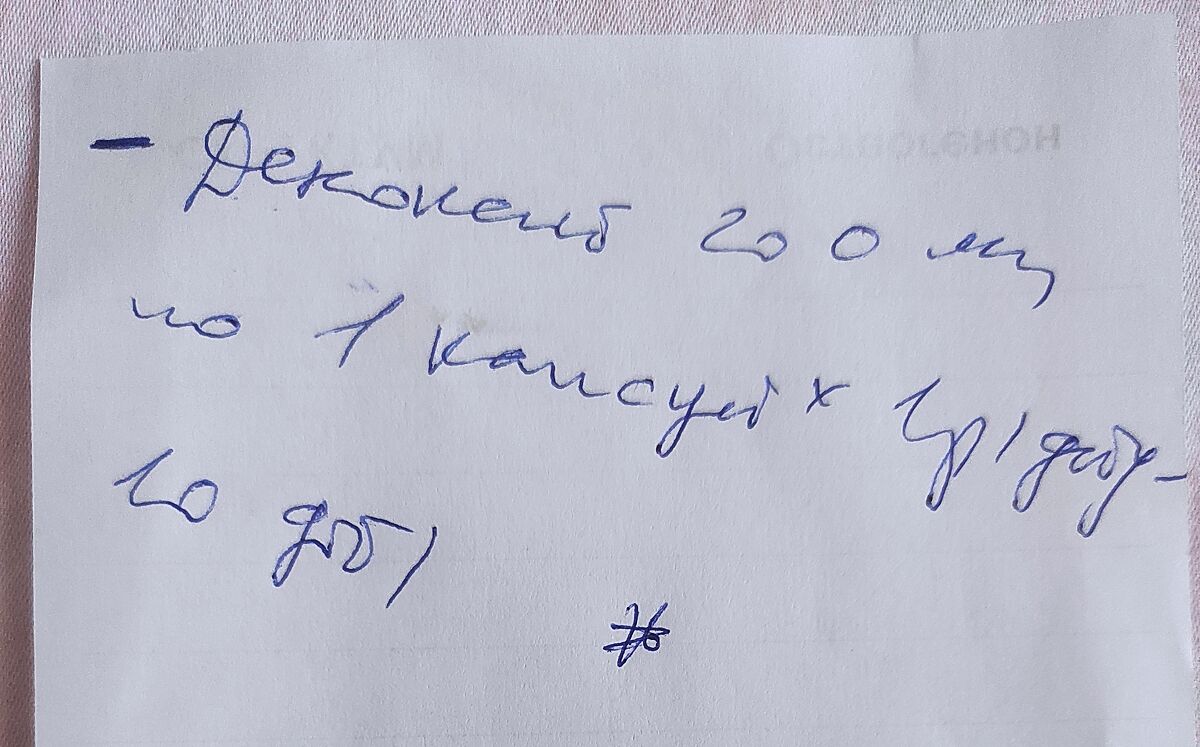 - Декокепт 200 мг
по 1 капсулі х 1р/добу-
10 діб